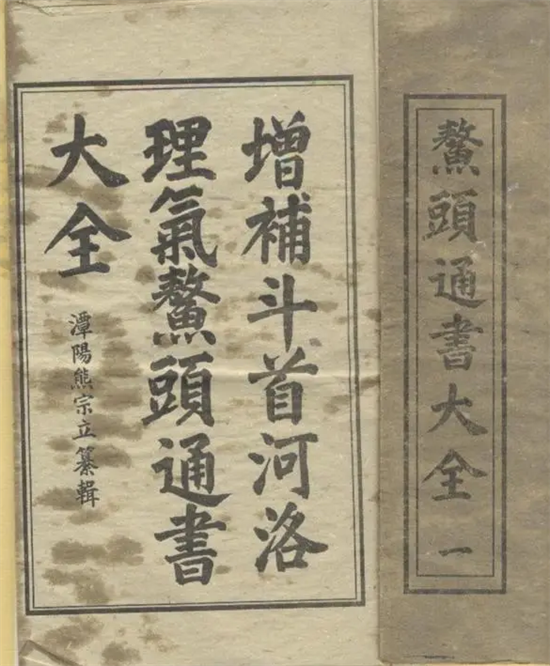 鼇頭通書大全 一
增補斗首河洛
理氣鼇頭通書
大全
潭陽熊宗立纂輯